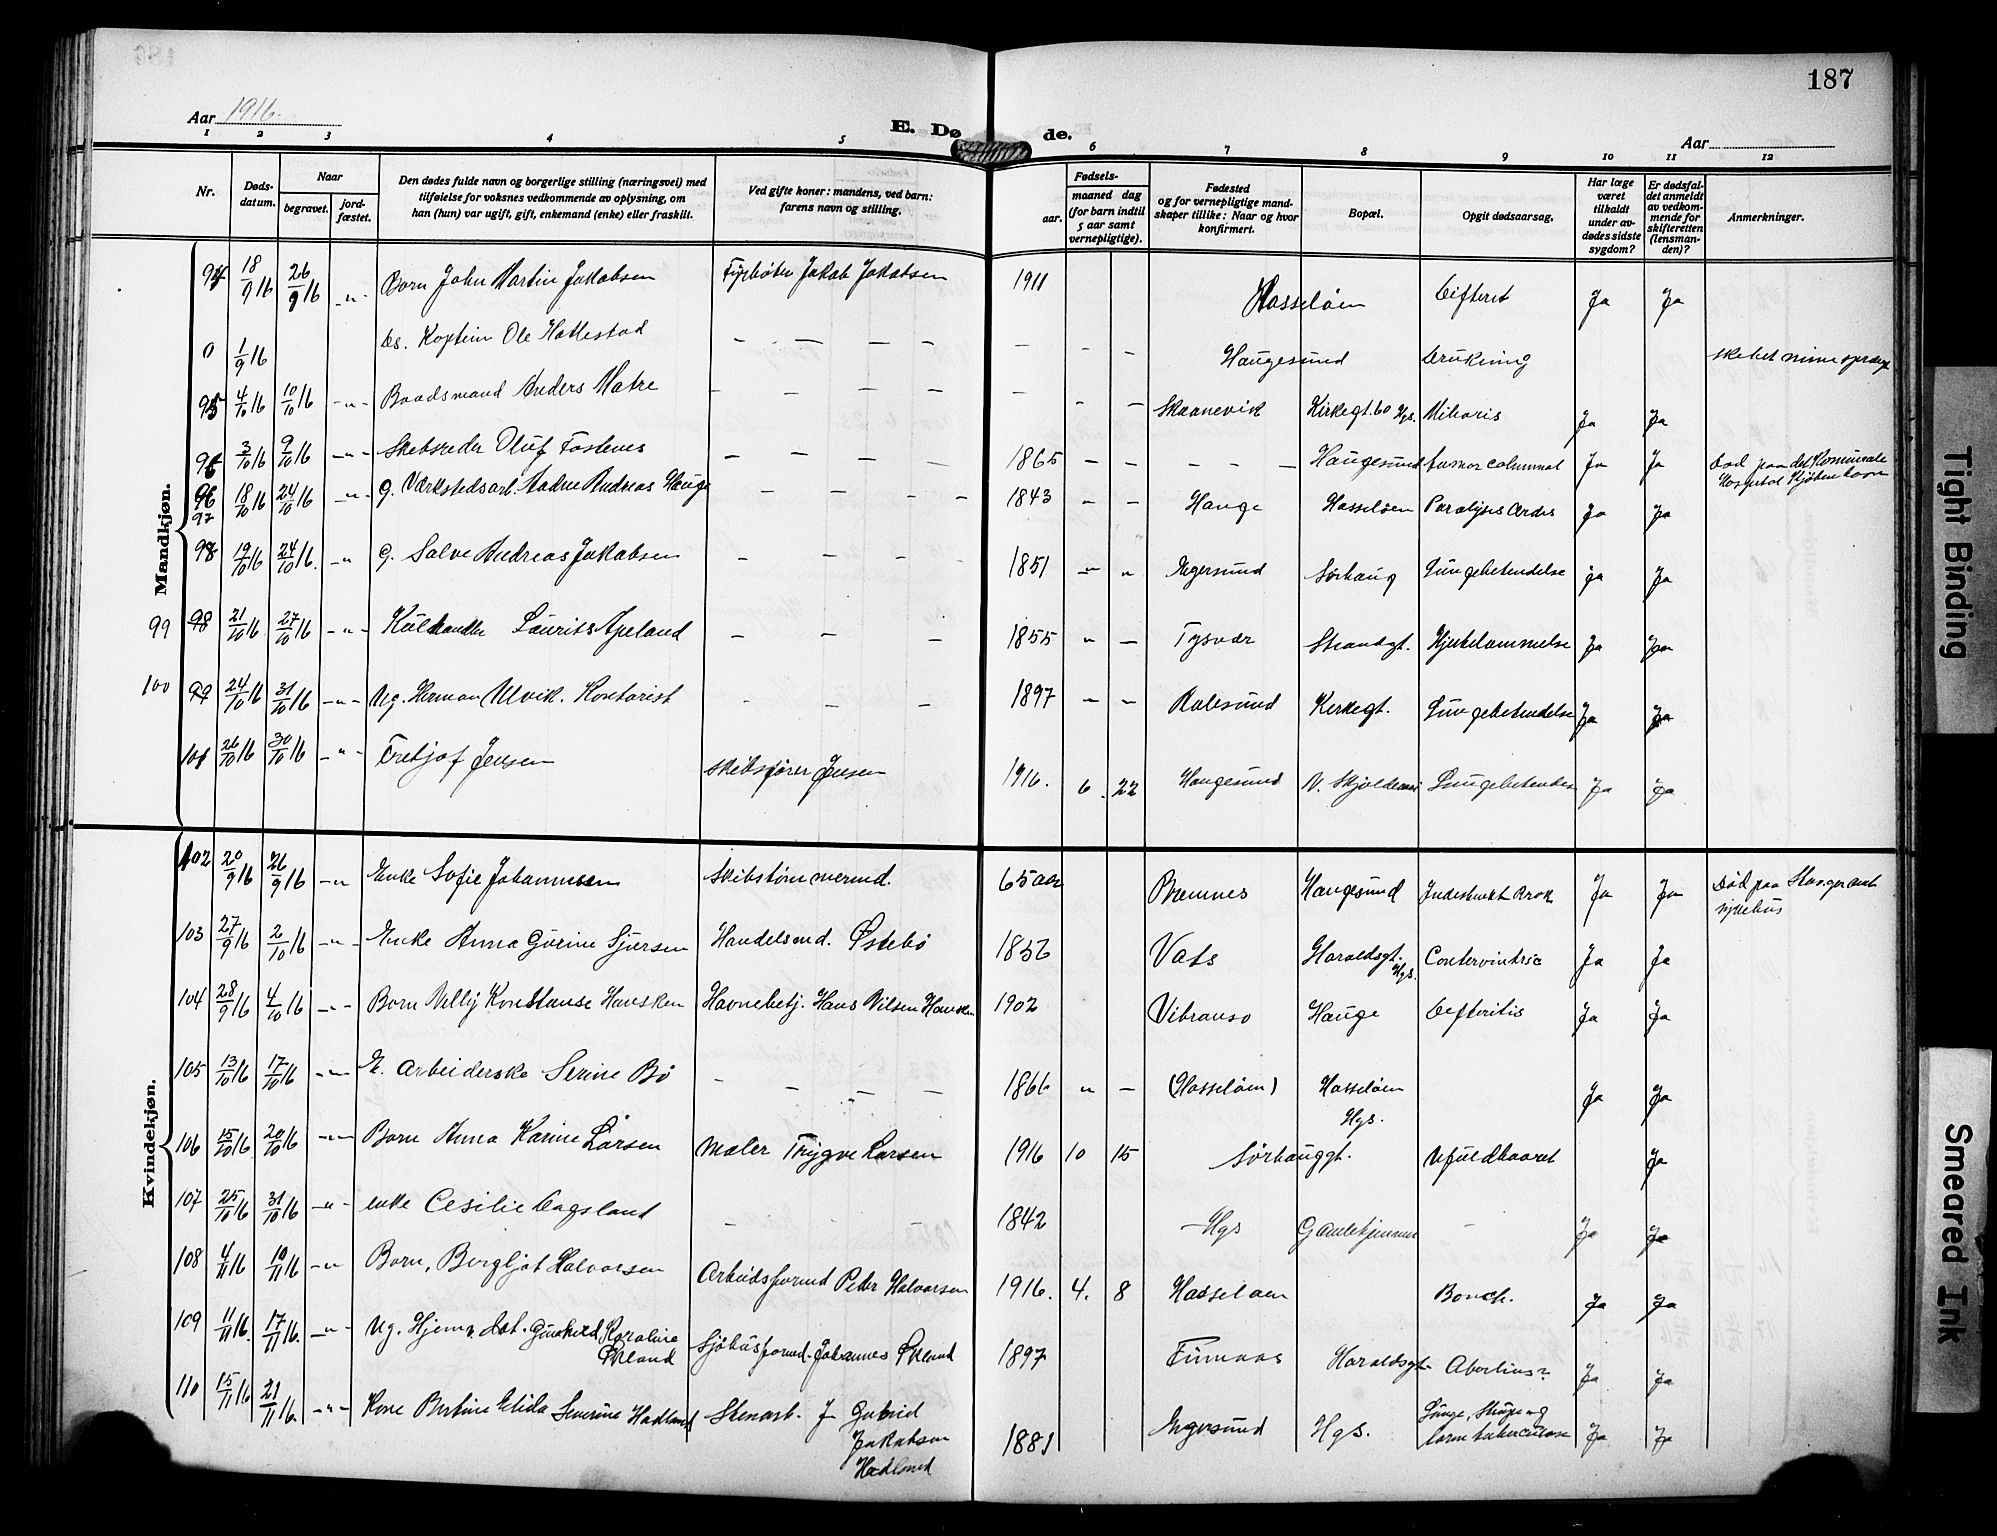 187
Aar 1916.
E. Døde.
Aar
1 2 3 4 5 6 7 8 9 10 11 12
Nr.
Døds-datum.
Naar
begravet.
jord-fæstet.
Den dødes fulde navn og borgerlige stilling (næringsvei) med tilføielse for voksnes vedkommende av oplysning, om han (hun) var ugift, gift, enkemand (enke) eller fraskilt.
Ved gifte koner: mandens, ved barn: farens navn og stilling.
Fødsels-
aar.
maaned dag (for barn indtil 5 aar samt vernepligtige).
Fødested og for vernepligtige mandskaper tillike: Naar og hvor konfirmert.
Bopæl.
Opgit dødsaarsag.
Har læge været tilkaldt under avdødes sidste sygdom?
Er dødsfaldet anmeldt av vedkommende for skifteretten (lensmanden)?
Anmerkninger.
Mandkjøn.
94 18/9 16 26/9 16 -"- Barn John Martin Jakobsen Fyrbøter Jakob Jakobsen 1911 - - Hasseløen Difterit Ja Ja
0 1/9 16 Ds. Kaptein Ole Hattestad - - - - - - - Haugesund Drukning skibet
95 4/10 16 10/10 16 -"- Baadsmand Anders Matre - - - - - - - Skaanevik Kirkegt. 60 Hgs. Ja Ja
96 3/10 16 9/10 16 -"- Skibsreder Oluf Fostenes - - - - 1865 - - - - - Haugesund Ja Ja Død paa det Komunale Hospital Kjøbenhavn
96 97 18/10 16 24/10 16 -"- g. Værkstedsarb. Andreas Hauge - - - - 1843 - - Hauge Hasseløen Paralysis Ja Ja
98 19/10 16 24/10 16. -"- g. Salve Andreas Jakobsen - - - - 1851 " " Egersund Sørhaug Lungebetendelse ja Ja
99 98 21/10 16 27/10 16 -"- Kulhandler Laurits Apeland - - - 1855 " - Tysvær Strandgt. Hjertelammelse Ja Ja
100 99 24/10 16 31/10 16 -"- Ug. Herman Ulvik. Kontorist - - - 1897 - - Aalesund Kirkegt. Lungebetendelse Ja Ja
101 26/10 16 30/10 16 -"- Fretjof Jensen Skibsfører Jensen 1916. 6. 22 Haugesund Lungebetendelse Ja Ja
Kvindekjøn.
102 20/9 16 26/9 16 -"- Enke Sofie Johannesen Skibstømmermd. 65 aar Bremnes Haugesund Ja Ja Død paa sykehus
103 27/9 16 2/10 16 -"- Enke Anna Gurine Sjursen Handelsmd. Østebø 1856 Vats Haraldsgt. Hgs. Ja Ja
104 28/9 16 4/10 16 -"- Barn Velly Konstanse Hansken Havnebetj. Hans Nilsen Hansken 1902 Vibrandsø Hauge Defteritis Ja Ja
105 13/10 16 17/10 16 -"- E. Arbeiderske Serine Bø - - - - 1866 " - (Hasseløen) Hasseløen Hgs. Ja Ja
106 15/10 16 20/10 16 -"- Barn Anna Karine Larsen Maler Trygve Larsen 1916 10 15 Sørhauggt. Ufuldbaaret Ja
107 25/10 16 31/10 16 -"- enke Cesilie Dagsland - 1842 - Hgs Gamlehjemmet - Ja Ja
108 4/11 16 10/11 16 -"- Barn, Borgljot Halvorsen Arbeidsformd Peder Halvorsen 1916. 4. 8 Hasseløen Bronch. Ja Ja
109 11/11 16. 17/11 16. -"- Ug. Hjemv. dat. Gunhild Karoline Økland Sjøhusformd. Johannes Økland 1897 Finnaas Haraldsgt. Ja Ja
110 15/11 16 21/11 16. -"- Kone Bertine Elida Severine Hadland Stenarb. J Gabriel Jakobsen Hadland 1881 Egersund Hgs. Lunge, Strupe og tarm tuberculose Ja Ja
Tight Binding
Smeared Ink